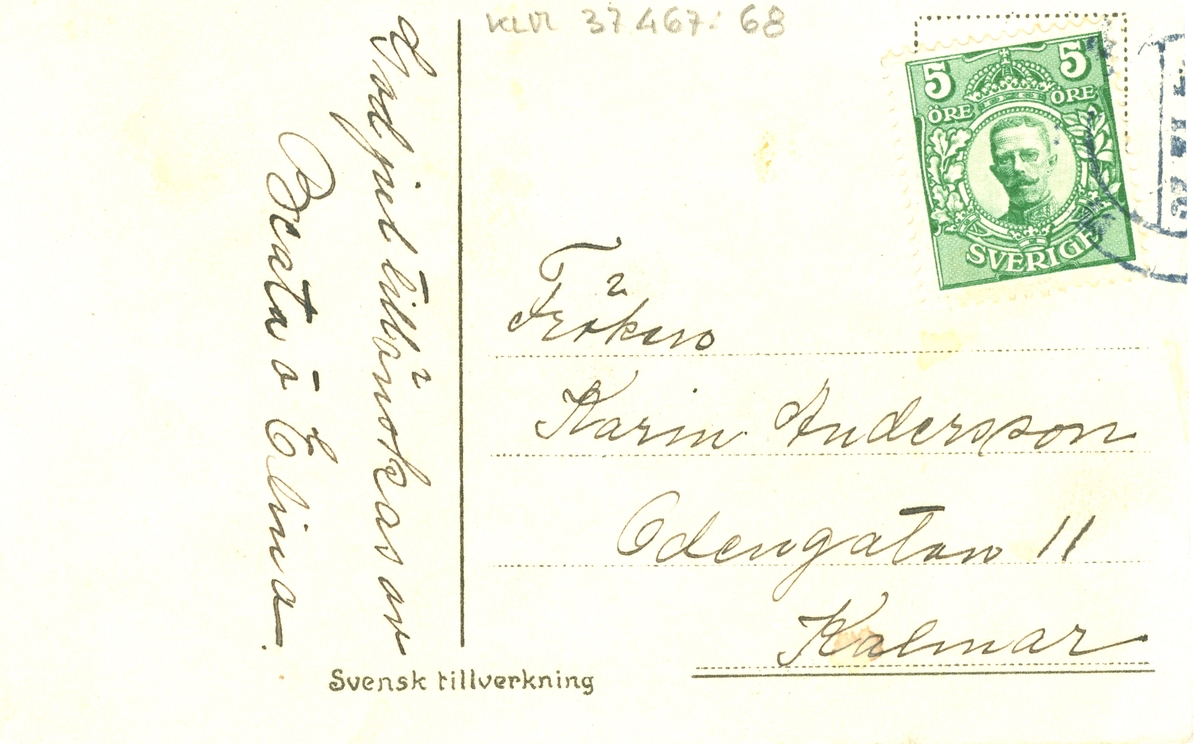 KLM 37.467:68
5 5
ÖRE ÖRE
SVERIGE
God jul tillönskas av
Beata o Elina.
Fröken
Karin Andersson
Odengatan 11
Kalmar
Svensk tillverkning